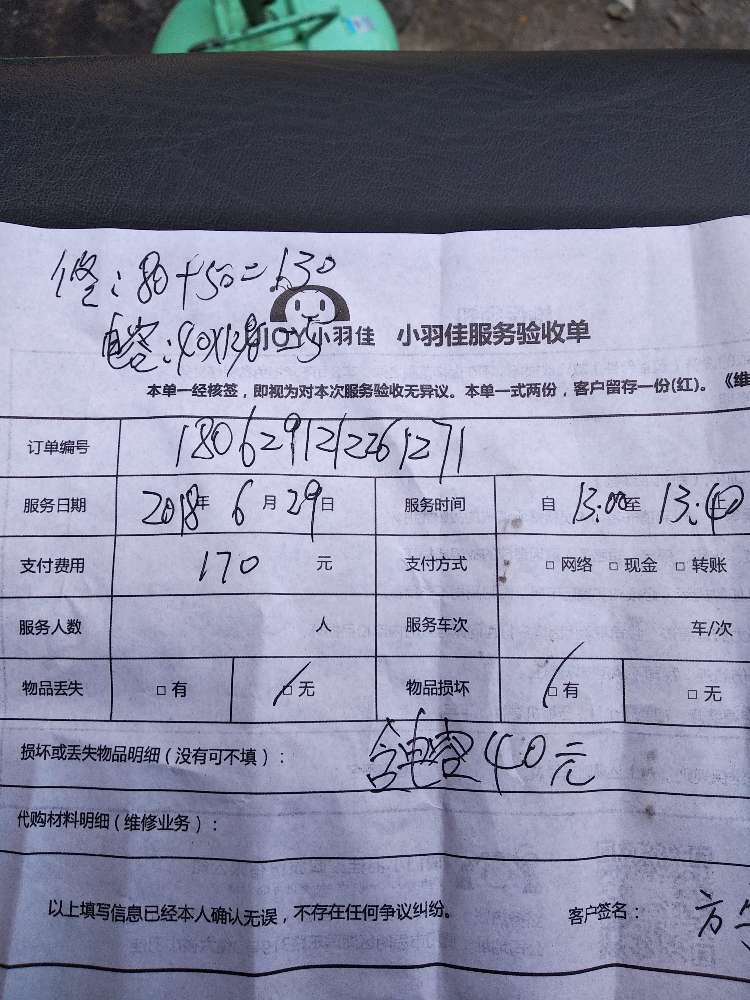 修：80+50=130
电容：40
JOY小羽佳 小羽佳服务验收单
本单一经核签，即视为对本次服务验收无异议。本单一式两份，客户留存一份(红)。《维
订单编号 1806291212261271
服务日期 2018年 6月29日 服务时间 自 13:00至 13:40止
支付费用 170 元 支付方式 □ 网络 □ 现金 □ 转账
服务人数 人 服务车次 车/次
物品丢失 □ 有 □ 无 物品损坏 □ 有 □ 无
损坏或丢失物品明细（没有可不填）： 含电容40元
代购材料明细（维修业务）：
以上填写信息已经本人确认无误，不存在任何争议纠纷。 客户签名： 方